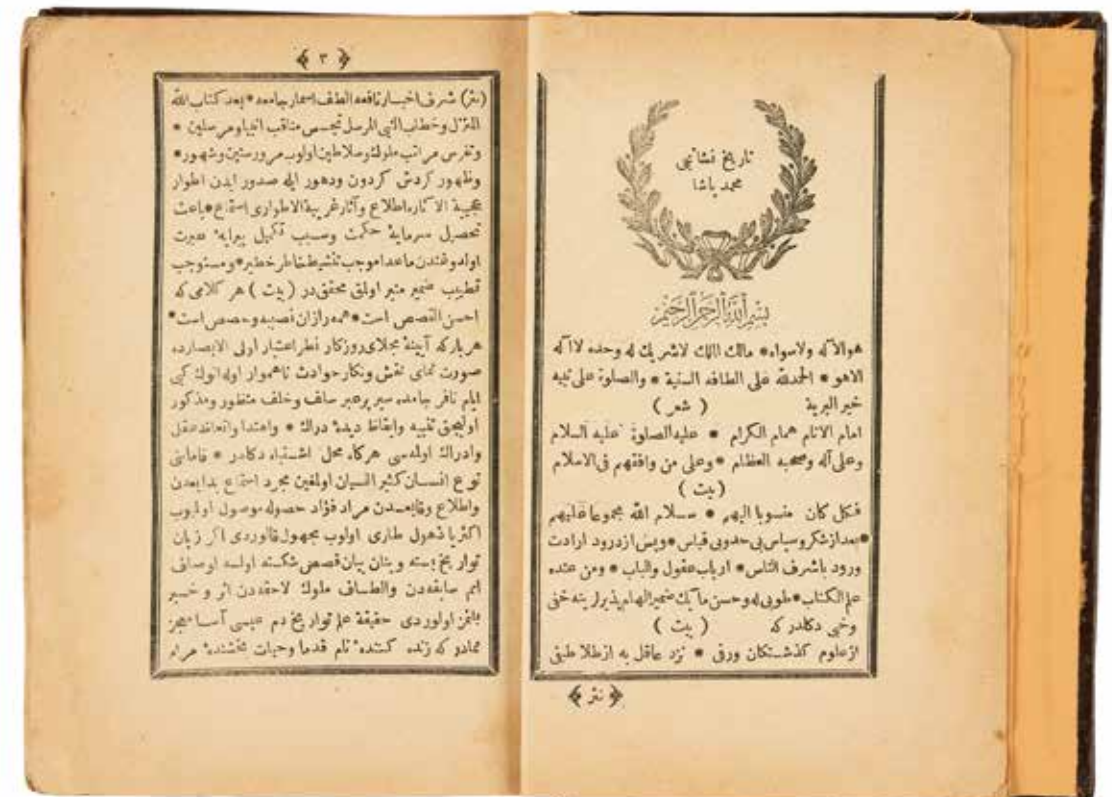 تاریخ نشانجی
محمد پاشا
بسم الله الرحمن الرحیم
هوالاله ولاسواه * مالك الملك لاشریك له وحده لااله
الاهو * الحمدلله علی الطافه السنیة * والصلوة علی نبیه
خیر البریة ( شعر )
امام الانام همام الكرام * علیه الصلوة علیه السلام
وعلی آله وصحبه العظام * وعلی من وافقهم فی الاسلام
( بیت )
فكل كان منسوبا الیهم * سلام الله مجموعا علیهم
* بعد از شكر وسپاس بی حدوبی قیاس * وپس از درود ارادت
ورود باشرف الناس * ارباب عقول والباب * ومن عنده
علم الكتاب * طوبی له وحسن مآبك ضمیر الهام پذیرلرینه خفی
وخبی دكلدر كه ( بیت )
ازعلوم كذشتكان ورقی * نزد عاقل به ازطلا طبقی
﴿ نثر ﴾
﴿ ٣ ﴾
(نثر) شرف اخبار نافعه الطف اسمار جامعه * بعد كتاب الله
المنزل وخطاب النبی المرسل تجسس مناقب انبیا ومرسلین *
وتفرس مراتب ملوك وسلاطین اولوب مرور سنین وشهور *
وظهور كردش كردون ودهور ایله صدور ایدن اطوار
عجیبة الآثاره اطلاع وآثار غریبة الاطواری استماع * باعث
تحصیل سرمایهٔ حكمت وسبب تكمیل پیرایهٔ عبرت
اولدوغندن ماعدا موجب تنشیط خاطر خطیر * ومستوجب
تطییب ضمیر منیر اولق محققدر ( بیت ) هر كلامی كه
احسن القصص است * همه رازان نصیبه وحصص است *
هربار كه آیینهٔ مجلای روزكار نظر اعتبار اولی الابصارده
صورت نمای نقش ونكار حوادث ناهموار اوله انوك كبی
ایام نافر جامده سیر پرعبر سالف وخلف منظور ومذكور
اولیجق تنبیه وایقاظ دیدهٔ دراك * واهتدا واتعاظ عقل
وادراك اولمه‌سی هركاه محل اشتباه دكلدر * فامانی
نوع انسان كثیر النسیان اولمغین مجرد استماع بدایعدن
واطلاع وقایعدن مراد فؤاد حصوله موصول اولمیوب
اكثریا ذهول طاری اولوب مجهول قالوردی اكر زبان
تواریخ بسته وبنان بیان قصص شكسته اولسه اوصاف
امم سابقه‌دن والطاف ملوك لاحقه‌دن اثر وخبر
بلنمز اولوردی حقیقة علم تواریخ دم عیسی آسا معجز
نمادر كه زنده كنندهٔ نام قدما وحیات بخشندهٔ مراد